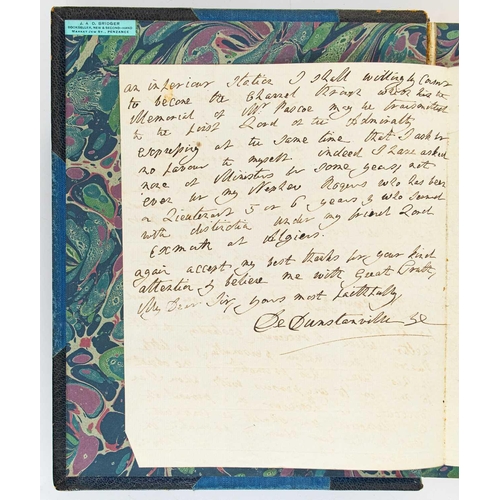 J. A. D. BRIDGER
BOOKSELLER, NEW & SECOND-HAND
Market Jew St., PENZANCE
an inferiour Station I shall willingly Consent
to become the Channel through which the
Memorial of Mr Pascoe may be transmitted
to the first Lord of the Admiralty
expressing at the same time that I ask
no favour to myself indeed I have asked
none of Ministers for some years, not
even for my Nephew Rogers who has been
a Lieutenant 5 or 6 years & who served
with distinction under my friend Lord
Exmouth at Algiers.
again accept my best thanks for your kind
attention & believe me with Great
My Dear Sir, yours most faithfully
De Dunstanville